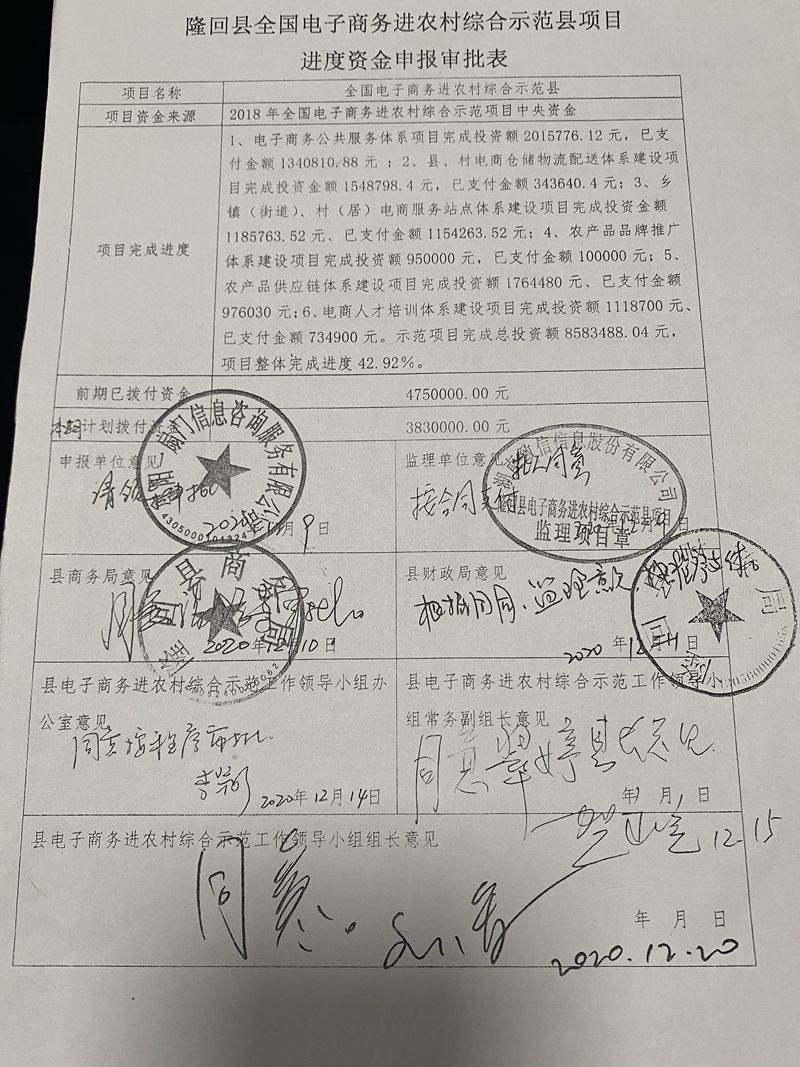 隆回县全国电子商务进农村综合示范县项目
进度资金申报审批表
项目名称
全国电子商务进农村综合示范县
项目资金来源
2018 年全国电子商务进农村综合示范项目中央资金
项目完成进度
1、电子商务公共服务体系项目完成投资额 2015776.12 元，已支
付金额 1340810.88 元 ；2、县、村电商仓储物流配送体系建设项
目完成投资金额 1548798.4 元，已支付金额 343640.4 元；3、乡
镇（街道）、村（居）电商服务站点体系建设项目完成投资金额
1185763.52 元、已支付金额 1154263.52 元；4、农产品品牌推广
体系建设项目完成投资额 950000 元，已支付金额 100000 元；5、
农产品供应链体系建设项目完成投资额 1764480 元、已支付金额
976030 元；6、电商人才培训体系建设项目完成投资额 1118700 元、
已支付金额 734900 元。示范项目完成总投资额 8583488.04 元，
项目整体完成进度 42.92%。
前期已拨付资金
4750000.00 元
本期计划拨付资金
3830000.00 元
申报单位意见
信息咨询服务有限公司
2020 年 月 9 日
监理单位意见
按合同支付
同意
信息股份有限公司
县电子商务进农村综合示范县项目
监理项目章
县商务局意见
同意
县商务局
2020 年 12 月 10 日
县财政局意见
根据合同、监理意见
2020 年 12 月 11 日
县电子商务进农村综合示范工作领导小组办
公室意见
同意按程序
2020 年 12 月 14 日
县电子商务进农村综合示范工作领导小
组常务副组长意见
同意翠婷县长意见
年 月 日
12.15
县电子商务进农村综合示范工作领导小组组长意见
同意。
年 月 日
2020.12.20